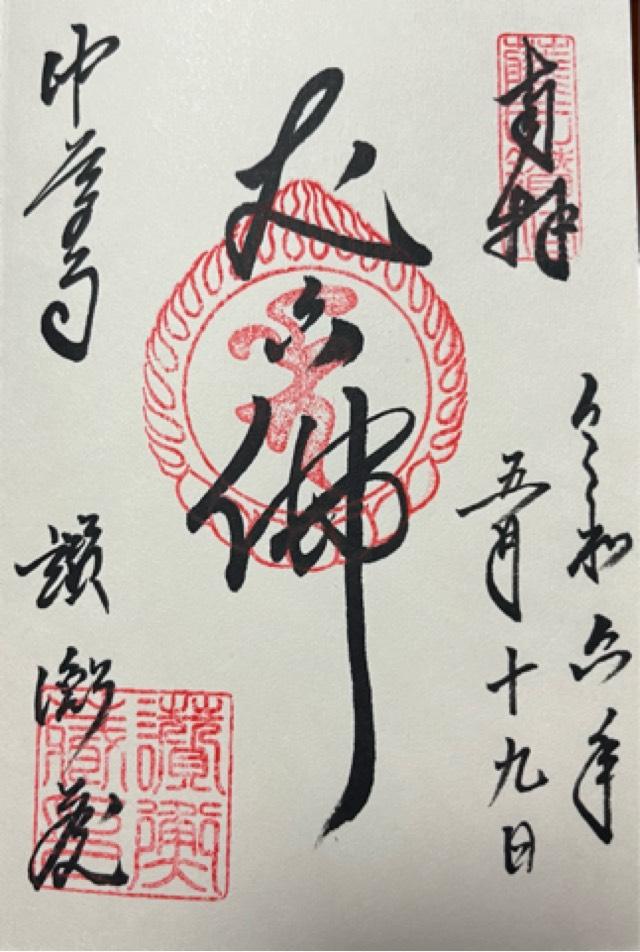 奉拝
令和六年
五月十九日
丈六佛
中尊寺
讃衡蔵
讃衡
蔵印